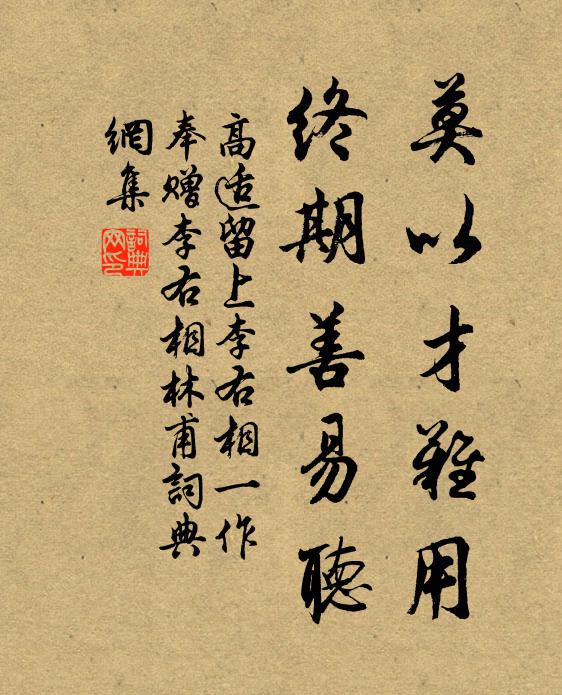 莫以才難用
終期善易聽
高适留上李右相一作
奉贈李右相林甫詞典
網集
詞典
网印